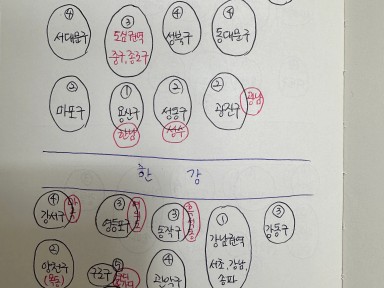 ④ ③ ④ ④
서대문구 도심권역 성북구 동대문구
중구, 종로구
② ① ② ②
마포구 용산구 성동구 광진구 광남
한남 성수
한 강
④ ③ ③ ① ③
강서구 영등포구 동작구 강남권역 강동구
서초, 강남,
송파
② ⑤ ④
양천구 구로구 관악구
(목동)